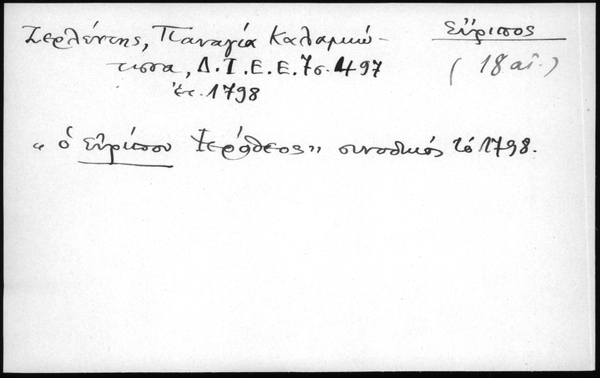 Ζερλέντης, Παναγία Καλαμιώ-
τισσα, Δ.Ι.Ε.Ε. 7 σ. 497
ἔτ. 1798
Εὔριπος
(18 αἰ.)
"ὁ Εὐρίπου Ἱερόθεος" συνοδικός τό 1798.